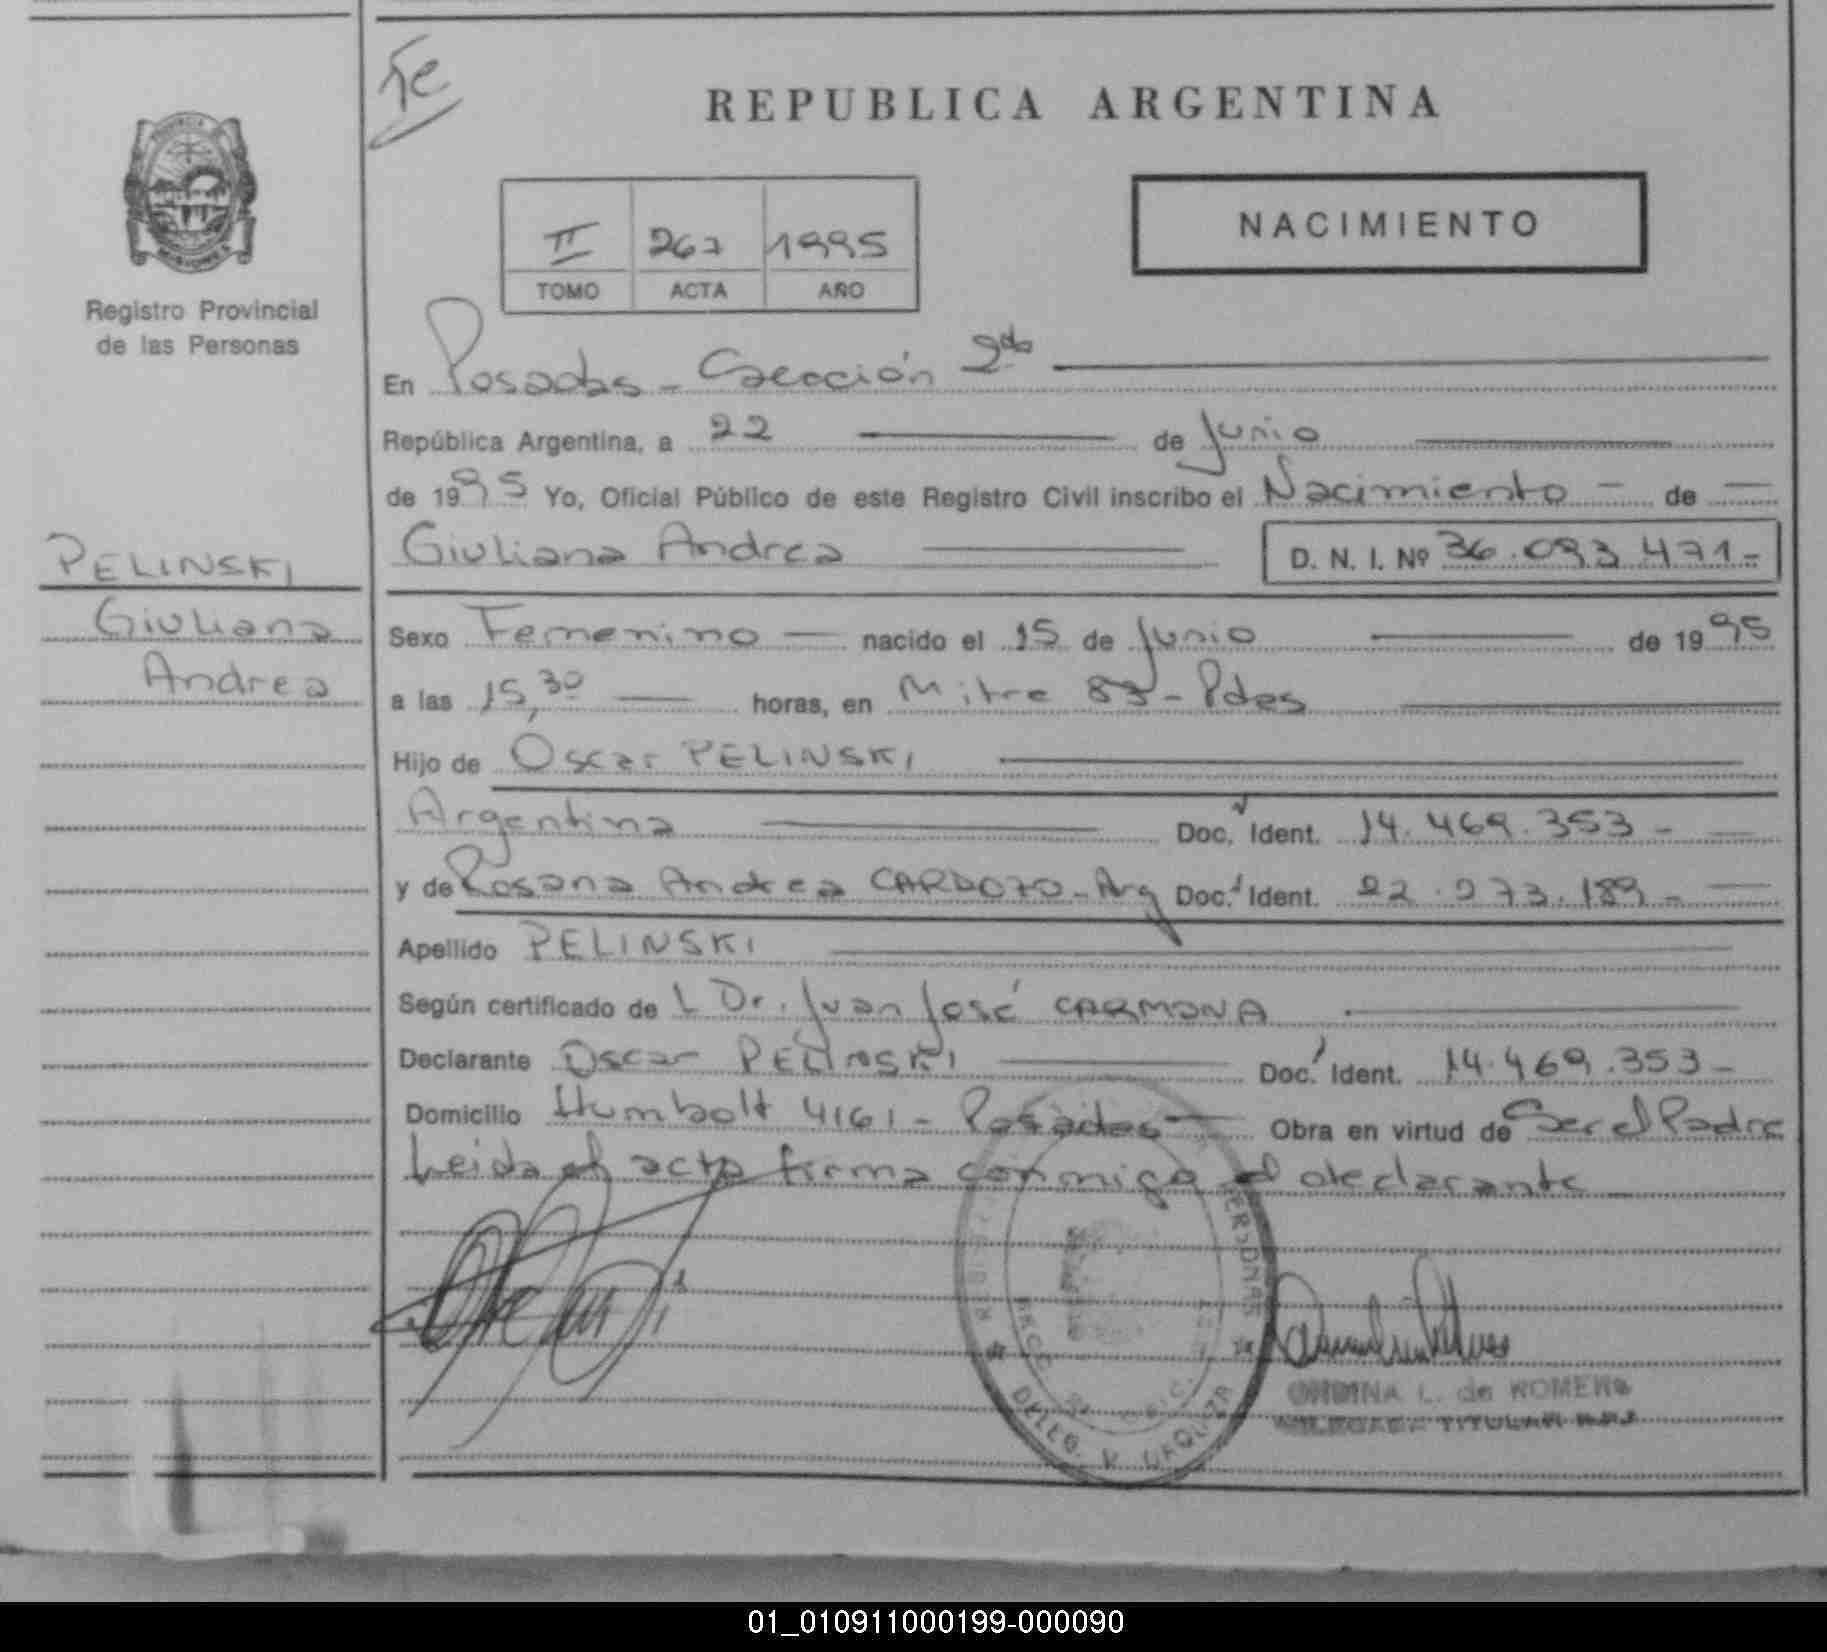 Fe
REPUBLICA ARGENTINA
PROVINCIA
MISIONES
Registro Provincial
de las Personas
II 267 1995
TOMO ACTA AÑO
NACIMIENTO
En Posadas - Sección 2da
República Argentina, a 22 de Junio
de 1995 Yo, Oficial Público de este Registro Civil inscribo el Nacimiento - de
Giuliana Andrea D. N. I. Nº 36.093.471-
PELINSKI
Giuliana
Andrea
Sexo Femenino nacido el 15 de Junio de 1995
a las 15,30 horas, en Mitre 83 - Pdas
Hijo de Oscar PELINSKI
Argentina Doc. Ident. 14.469.353-
y de Rosana Andrea CARDOZO - Arg Doc. Ident. 22.273.189-
Apellido PELINSKI
Según certificado de L Dr. Juan José CARMONA
Declarante Oscar PELINSKI Doc. Ident. 14.469.353-
Domicilio Humbolt 4161 - Posadas Obra en virtud de Ser el Padre
Leida el acta firma conmigo el declarante
PERSONAS
DELEG. V. URQUIZA
L. de ROMERO
TITULAR
01_010911000199-000090